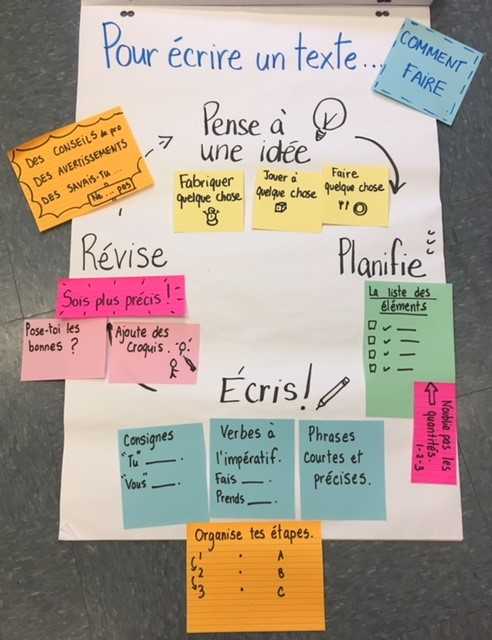 Pour écrire un texte...
COMMENT
FAIRE
DES CONSEILS de pro
DES AVERTISSEMENTS
DES SAVAIS-TU...
Ne ... pas
Pense à
une idée
Fabriquer
quelque chose
Jouer à
quelque chose
Faire
quelque chose
Planifie
La liste des
éléments
N'oublie pas les
quantités.
1-2-3
Écris!
Consignes
"Tu" ___.
"Vous" ___.
Verbes à
l'impératif.
Fais ___.
Prends ___.
Phrases
courtes et
précises.
Organise tes étapes.
1 • A
2 • B
3 • C
Révise
Sois plus précis!
Pose-toi les
bonnes ?
Ajoute des
croquis.